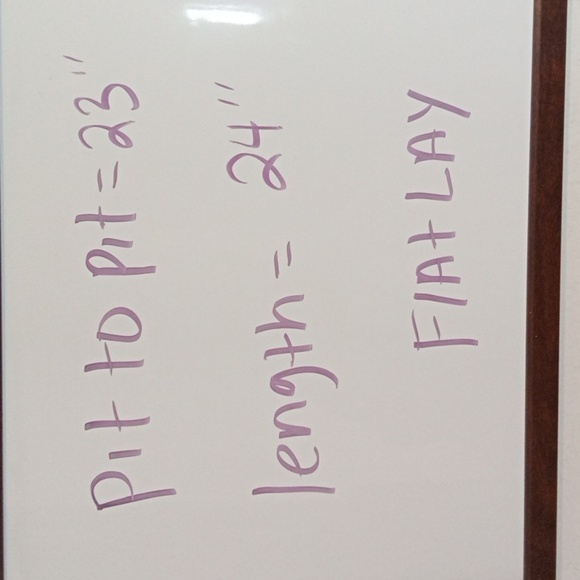 pit to pit = 23"
length = 24"
FlAt LAY